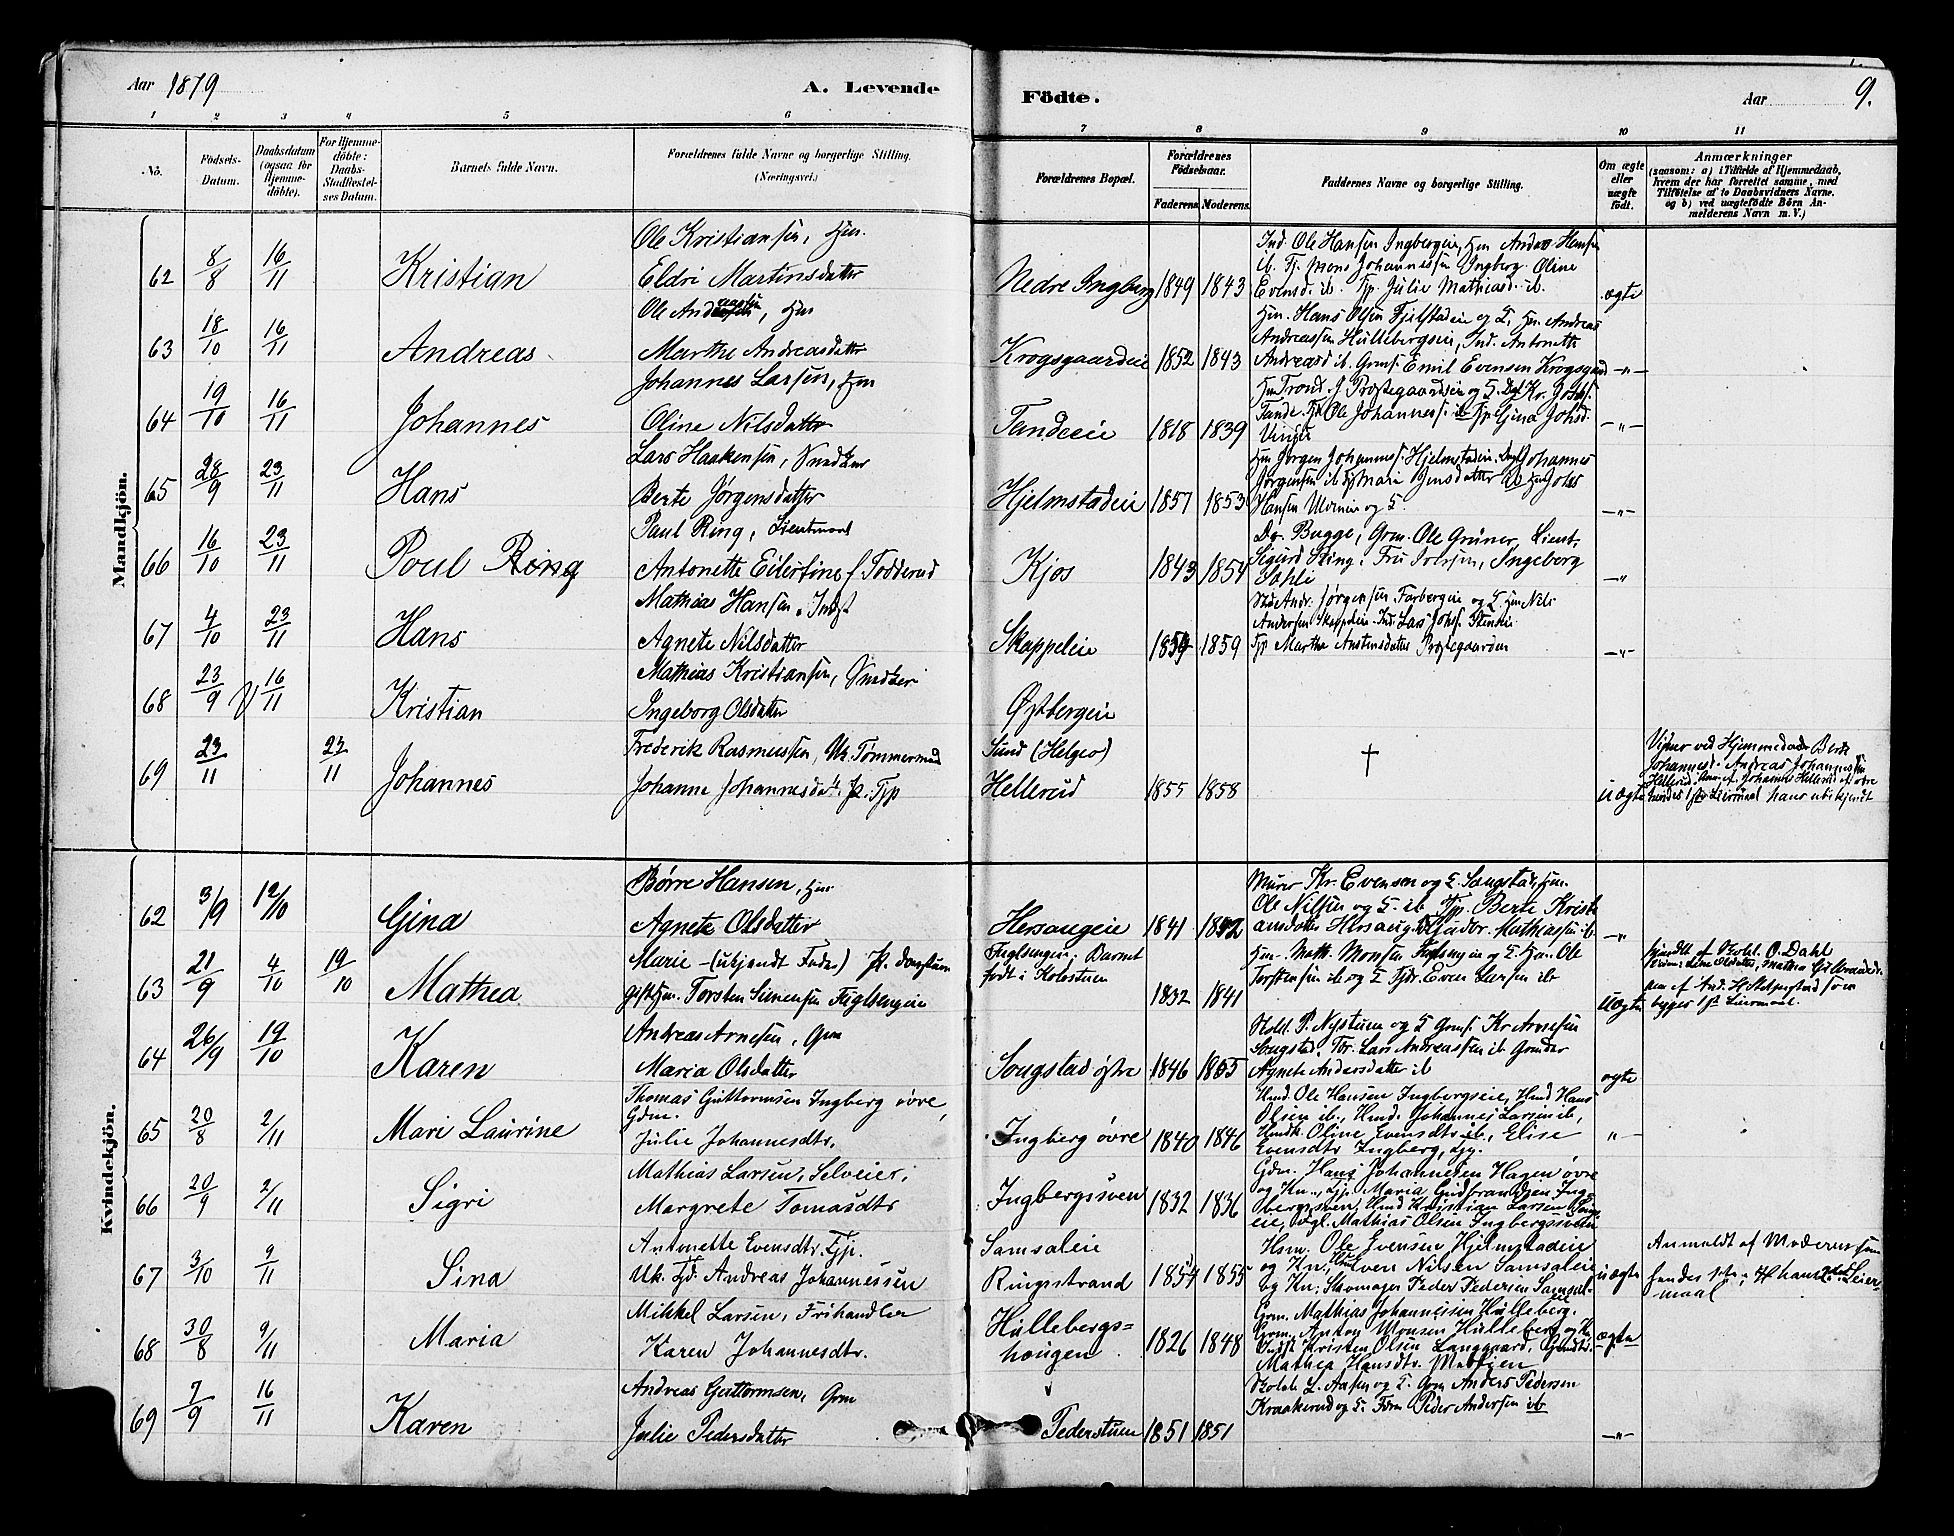 Aar 1879 A. Levende Födte. Aar 9.
1 2 3 4 5 6 7 8 9 10 11
No.
Födsels-Datum.
Daabsdatum (ogsaa for Hjemmedöbte).
For Hjemmedöbte: Daabs-Stadfestelses Datum.
Barnets fulde Navn.
Forældrenes fulde Navne og borgerlige Stilling. (Næringsvei.)
Forældrenes Bopæl.
Forældrenes Födselsaar.
Faderens. Moderens.
Faddernes Navne og borgerlige Stilling.
Om ægte eller uægte födt.
Anmærkninger
(saasom: a) i Tilfælde af Hjemmedaab, hvem der har forrettet samme, med Tilföielse af to Daabsvidners Navne. og b) ved uægtefödte Börn Anmelderens Navn m. V.)
Mandkjön.
62 8/8 16/11 Kristian
Ole Kristiansen, Hm.
Eldri Martinsdatter
Nedre Ingberg 1849 1843
Ind. Ole Hansen Ingbergeie, Hm Andr. Hansen
ib. Tj. Mons Johannessen Ingberg. Oline
Evensd. ib. Tjp. Julie Mathiasd. ib.
ægte
63 18/10 16/11 Andreas
Ole Andreassen, Hm
Marthe Andreasdatter
Krogsgaardeie 1852 1843
Hm. Hans Olsen Fjelstadeie og H, Hm. Andreas
Andreassen Hullebergseie, Ind. Antonette
Andreasd ib. Grms. Emil Evensen Krogsgaard
—"—
64 19/10 16/11 Johannes
Johannes Larsen, Hm
Oline Nilsdatter
Tandeeie 1818 1839
Tande. Ole Johanness. ib Tjp Gjina Johsd.
—"—
65 28/9 23/11 Hans
Lars Haakensen, Snedker
Berte Jørgensdatter
Hjelmstadeie 1857 1853
Hm Jørgen Johanness. Hjelmstadeie. Johannes
Jørgensen ib
Hansen
—"—
66 16/10 23/11 Poul Ring
Paul Ring, Lieutnant
Antonette Eilertine f. Todderud
Kjos 1843 1854
Dr. Bugge, Grm. Ole Grüner, Lieut.
Sigurd Ring, Fru Iversen, Ingeborg
Sahli
—"—
67 4/10 23/11 Hans
Mathias Hansen, Indst
Agnete Nilsdatter
Skappeleie 1859 1859
Andr. Jørgensen Farbergeie Hm Nils
Andersen Skappeleie. Ind. Lars Johs.
Tjp Marthe Austensdatter Præstegaarden
—"—
68 23/9 16/11 Kristian
Mathias Kristiansen, Snedker
Ingeborg Olsdatter
Østbergeie
69 23/11 23/11 Johannes
Frederik Rasmussen, Uk. Tømmermnd
Johanne Johannesdat. Pk. Tjp
Sund (Helgeø)
Hellerud 1855 1858
†
uægte
Vidner ved Hjemmedaab Berte
Johannesd. Andreas Johannessen
Hellerud. Anm. af Johannes Hellerud
hendes 1ste Leiermaal hans ubekjendt
Kvindekjön.
62 3/9 12/10 Gina
Børre Hansen, Hm
Agnete Olsdatter
Hersaugeie 1841 1842
Murer Kr. Evensen og H. Saugstad, Hm.
Ole Nilsen og H. ib. Tjp. Berte Kristi
ansdatter Hersaug, Mathiassen ib
—"—
63 21/9 4/10 19/10 Mathea
Marie – (ukjendt Fader)
gift Hm. Torsten Simensen Fuglsengeie
Fuglsengeie. Barnet
født i Kolostuen
1832 1841
Hm. Math. Monsen Fuglsengeie og H. Hm. Ole
Torstensen ib og H Even Larsen ib
uægte
O. Dahl
1ste Leiermaal.
64 26/9 19/10 Karen
Andreas Arnesen, Grm
Maria Olsdatter
Sougstad østre 1846 1855
P. Nystuen og H Grms. Kr Arnesen
Sougstad. Lars Andreassen ib
Agnete Andersdatter ib
ægte
65 20/8 2/11 Mari Laurine
Thomas Guttormsen Ingberg øvre,
Gdm.
Julie Johannesdtr.
Ingberg øvre 1840 1846
Hmd. Ole Hansen Ingbergseie, Hmd Hans
Olsen ib., Hmd. Johannes Larsen ib,
Hmdk. Oline Evensdtr ib., Elise
Evensdtr Ingberg, tjp.
"—
66 20/9 2/11 Sigri
Mathias Larsen, Selveier;
Margrete Tomasdtr
Ingbergsven 1832 1836
Gdm. Hans Johannesen Hagen øvre
og Kn., tjp. Maria Gudbrandsen Ing-
bergsven, Hmd Kristian Larsen
eie, Mathias Olsen Ingbergssveen
67 3/10 9/11 Sina
Antonette Evensdtr. Tjp.
Uk. Andreas Johannessen
Samsaleie
Ringsstrand 1854 1855
Hsm. Ole Evensen Hjelmstadeie
og Kn; Even Nilsen Samsaleie
og Kn; Skomager Peder Pedersen
uægte
Anmeldt af Moderen som
hendes 1ste; hans 2det Leier-
maal
68 30/8 9/11 Maria
Mikkel Larsen, Frihandler
Karen Johannesdtr.
Hullebergs=
haugen 1826 1848
Grm. Mathias Johannessen Hulleberg.
Grm. Anton Monsen Hulleberg og Kn
Indst Kristen Olsen Langgaard,
Mathea Hansdtr.
ægte
69 7/9 16/11 Karen
Andreas Guttormsen, Grm
Julie Pedersdatter
Pederstuen 1851 1851
L. Aasen og H. Grm Anders Pedersen
Kraakerud og H. Peder Andersen ib
—"—